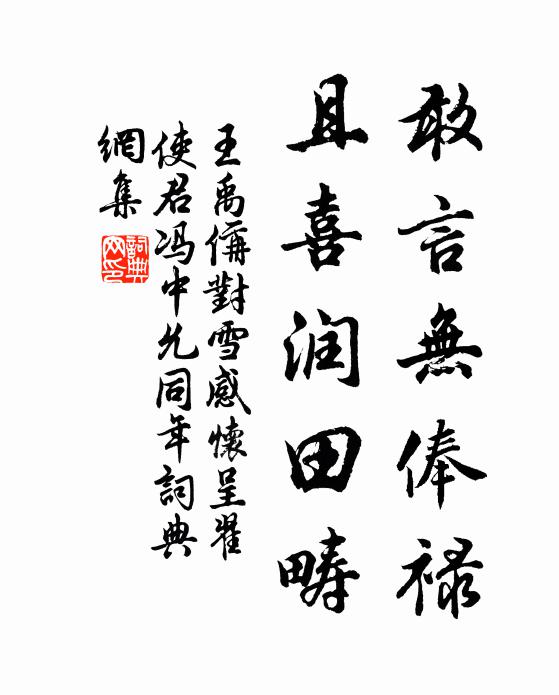 敢言無俸禄
且喜润田畴
王禹偁對雪感懷呈翟
使君冯中允同年詞典
網集
詞典網印